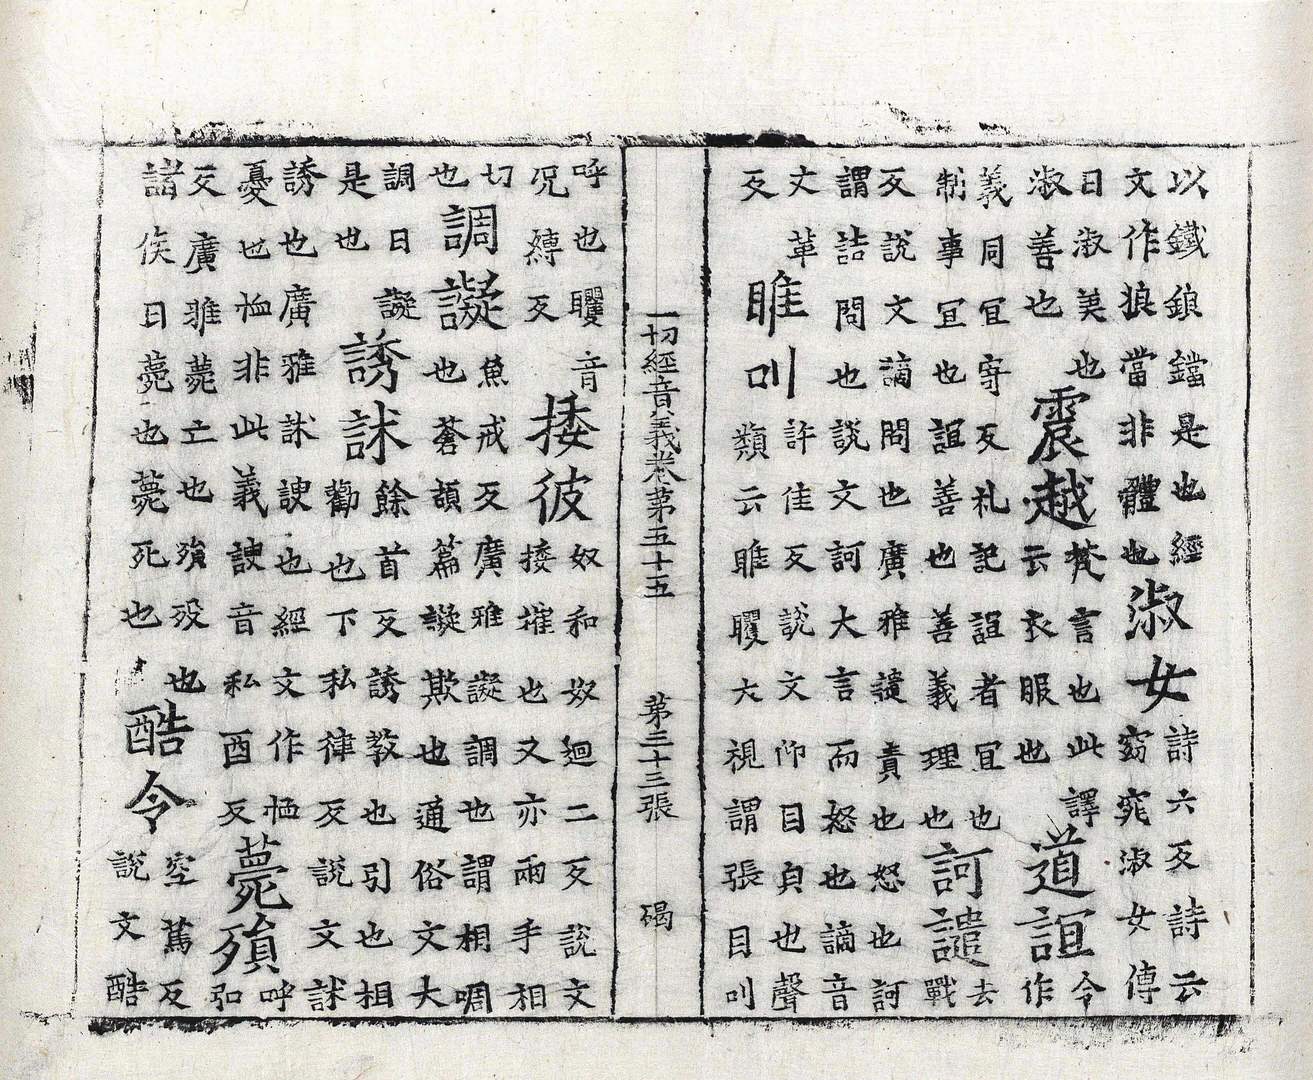 以鐵鎖鐺是也經文作狼當非體也淑女詩六反詩云窈窕淑女傳
曰淑美也淑善也震越梵言也此譯云衣服也道誼今作
義同宜寄反礼記誼者宜也制事宜也誼善也善義理也訶譴去戰
反說文謫問也廣雅譴責也怒也訶謂詰問也說文訶大言而怒也謫音
丈革反睢叫許佳反說文仰目貞也聲類云睢矡大視謂張目叫
一切經音義卷第五十五 第三十三張 碣
呼也矡音况縛反捼彼奴和奴迴二反說文捼摧也又亦兩手相
切也調譺魚戒反廣雅譺調也謂相啁也蒼頡篇譺欺也通俗文大
調曰譺是也誘訹餘首反誘教也引也相勸也下私律反說文訹
誘也廣雅訹諛也經文作恤憂也恤非此義諛音私酉反薨殞呼弘
反廣雅薨亡也殞歿也諸侯曰薨也薨死也酷令空篤反說文酷